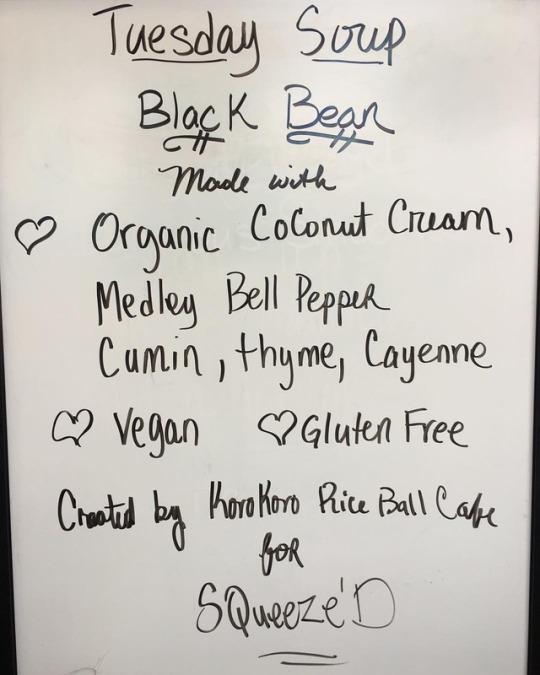 Tuesday Soup
Black Bean
Made with
♡ Organic Coconut Cream,
Medley Bell Pepper
Cumin, thyme, Cayenne
♡ Vegan ♡ Gluten Free
Created by KoroKoro Rice Ball Cafe
for
SQueeze'D